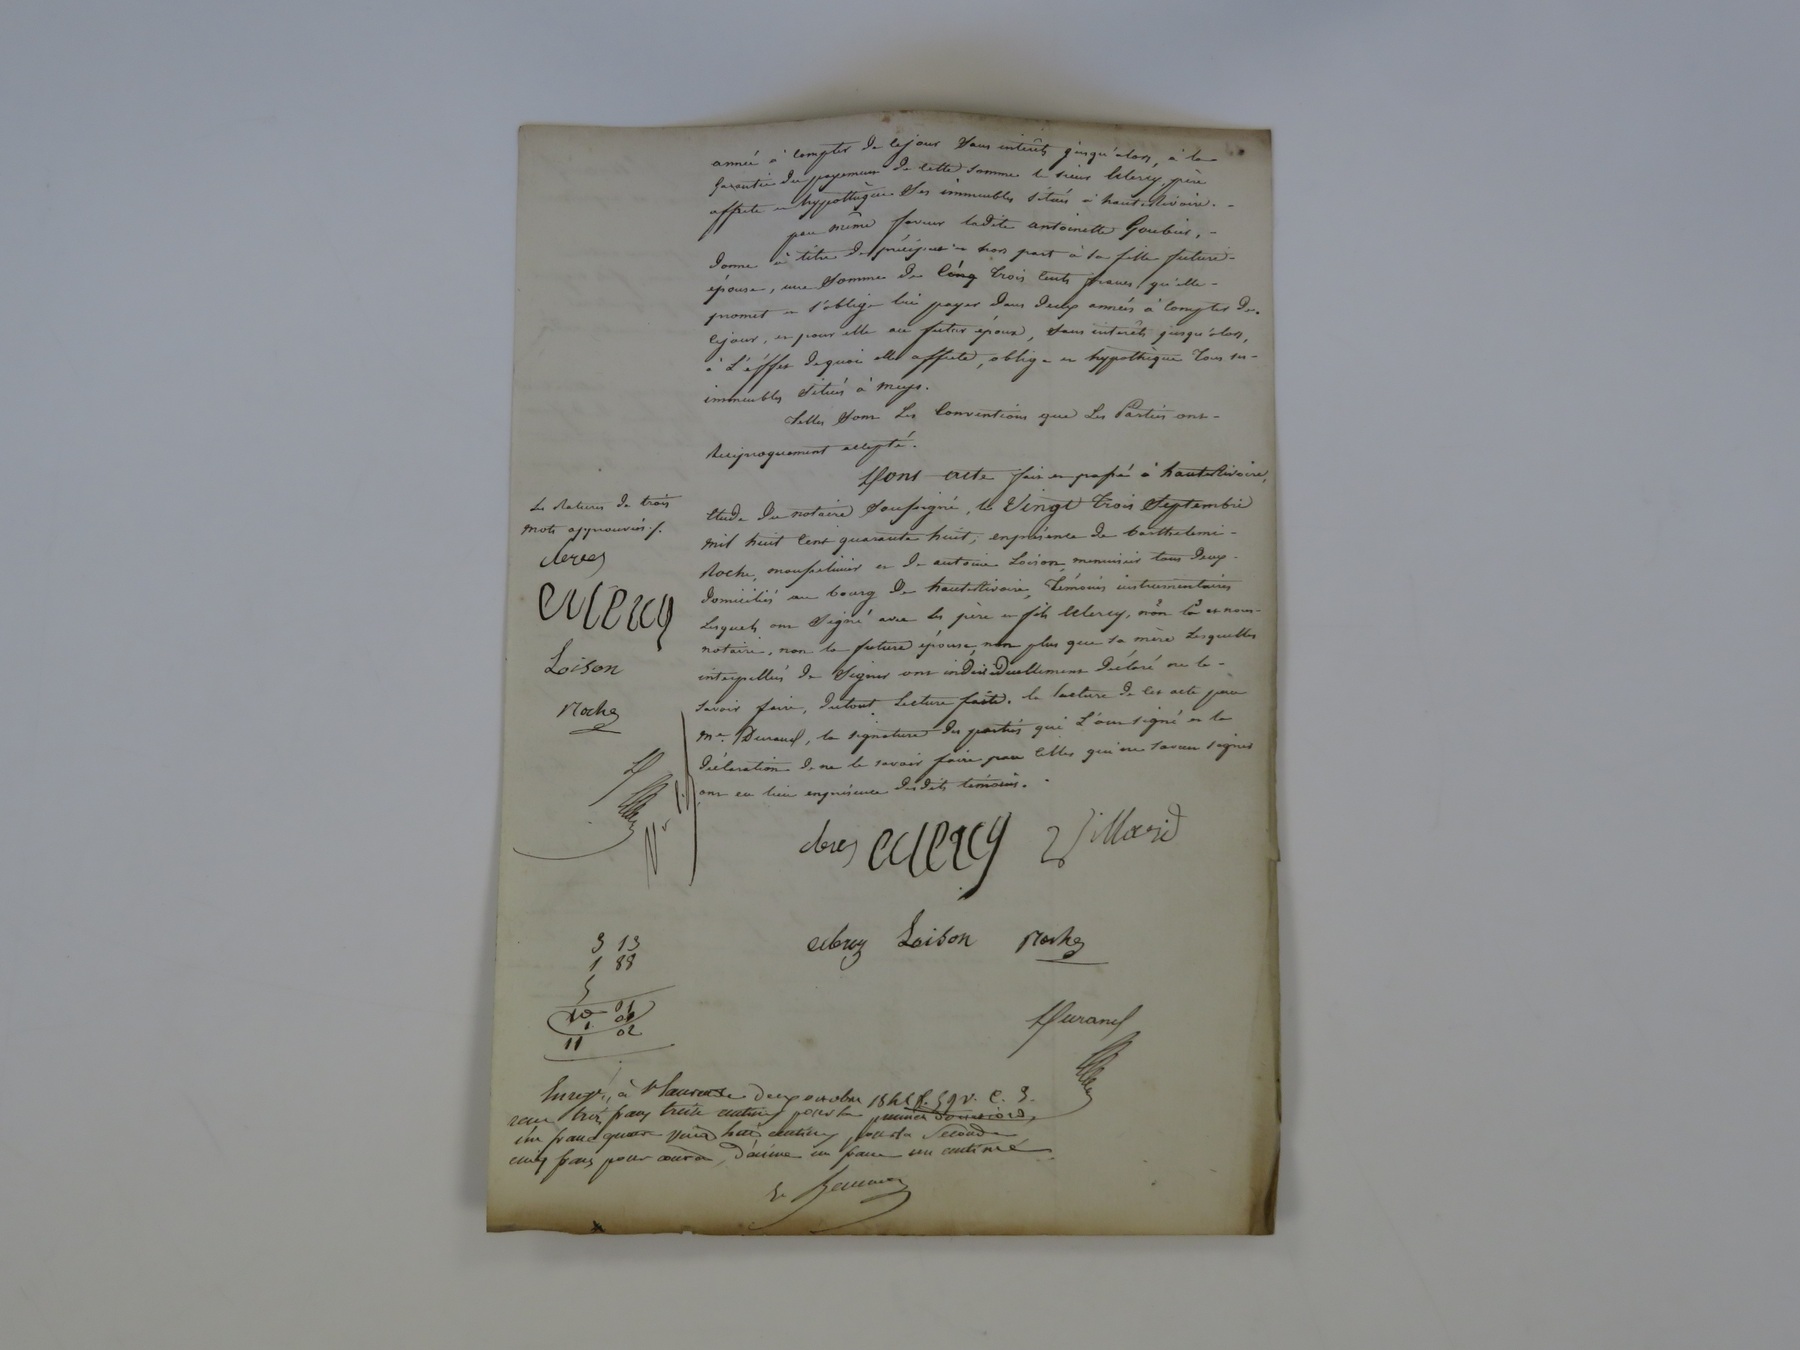 année à compter de cejour Sans intérêts jusqu'alors, à la
garantie du payement de cette somme le sieur Clercy, père
affecte en hypothèque Ses immeubles situés à hauterivoire.
par même faveur ladite antoinette Goubier,
donne à titre de préciput en hors part à sa fille future
épouse, une Somme de Cinq trois Cents francs, qu'elle
promet et s'oblige lui payer dans deux années à Compter de
Cejour, en pour elle au futur époux, Sans intérêts jusqu'alors,
à L'éffet dequoi elle affecte, oblige en hypothèque tous ses
immeubles Situés à meys.
telles Sont Les Conventions que Les Parties ont
Réciproquement accepté.
Dont acte fait en passé à hauterivoire,
Etude du notaire Soussigné, le Vingt trois Septembre
mil huit Cent quarante huit, enprésence de barthelemi
Roche, et de antoine Loison, menuisier tous deux
domiciliés au bourg de hauterivoire, témoins instrumentaires
Lesquels ont Signé avec Les père en fils Clercy, et nous
notaire, non la future épouse, non plus que sa mère Lesquelles
interpellées de Signer ont individuellement déclaré ne le
savoir faire, dutout Lecture faite. la lecture de cet acte par
me. Durand, la signature des parties qui L'ont signé en la
déclaration de ne le savoir faire par Celles qui ne savent signer
ont eu lieu enprésence desdits témoins.
La Rature de trois
mots approuvée ./.
Clercy
Loison
Roche
Clercy Villard
Loison Roche
Durand
3 13
1 88
5
10 01
1. 01
11 02
Enreg. à St Laurent le deux octobre 1848 f. 59 v. C. 3.
reçu trois francs treize centimes pour la première donation,
un franc quatre vingt huit centimes pour la Seconde
cinq francs pour décime un franc un centime